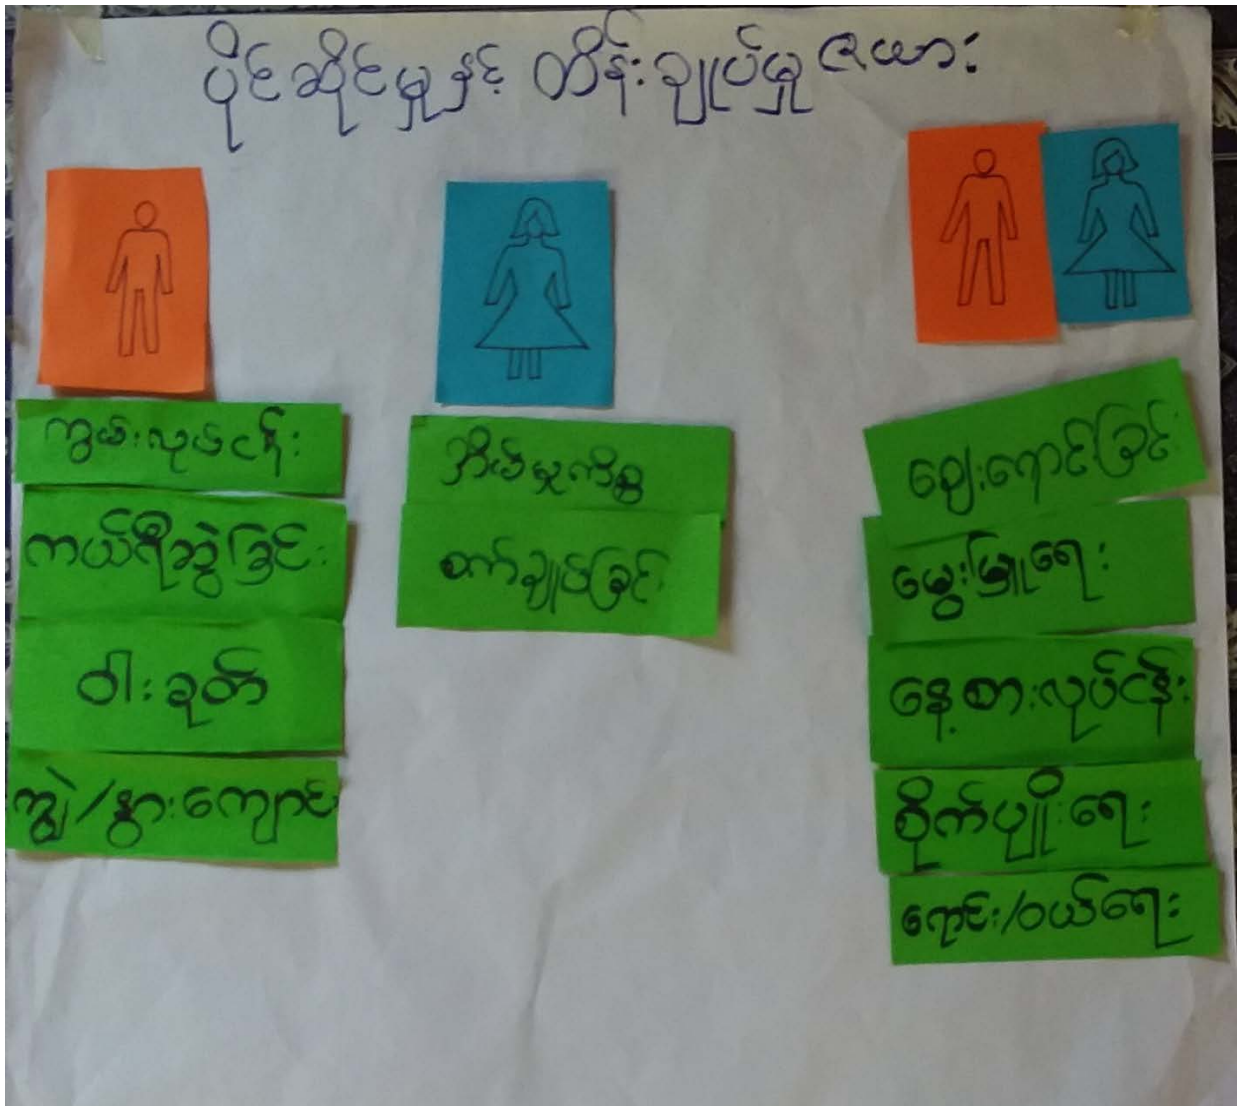 ပိုင်ဆိုင်မှုနှင့် ထိန်းချုပ်မှု ဇယား
ကျွမ်းလုပ်ငန်း
ကယ်ရီဆွဲခြင်း
ဝါးခုတ်
ကျွဲ/နွားကျောင်း
အိမ်မှုကိစ္စ
စက်ချုပ်ခြင်း
ဈေးရောင်းခြင်း
မွေးမြူရေး
နေ့စားလုပ်ငန်း
စိုက်ပျိုးရေး
ရောင်း/ဝယ်ရေး